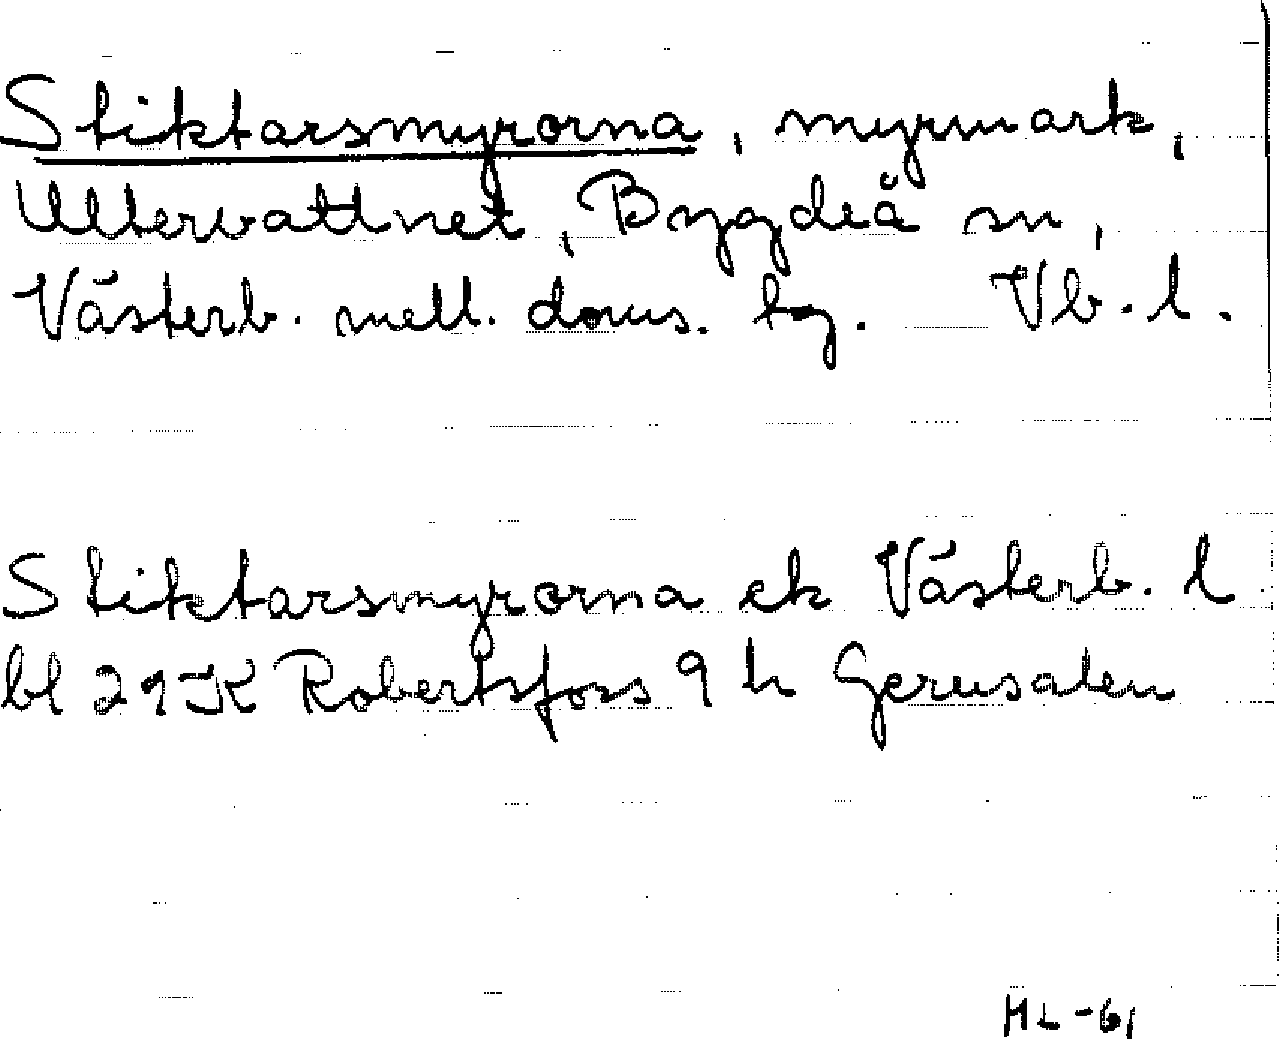 Stiktarsmyrorna, myrmark,
Ultervattnet, Bygdeå sn,
Västerb. mell. doms. tg. Vb. l.
Stiktarsmyrorna ek Västerb. l
bl 21K Robertsfors 9 h Gerusalen
HL-61